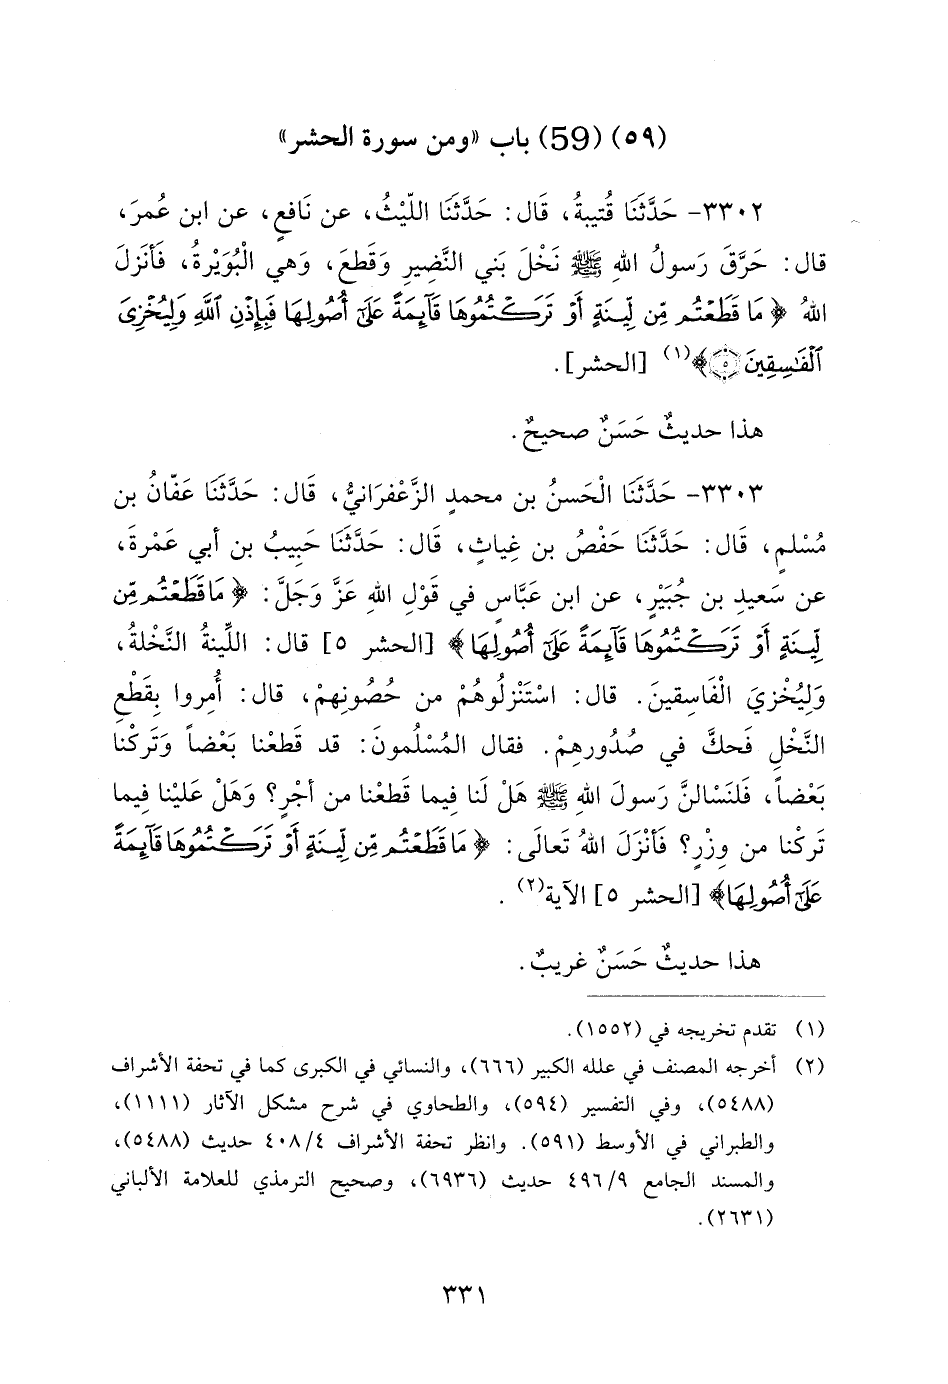 (٥٩) (59) باب «ومن سورة الحشر»
٣٣٠٢- حَدَّثَنَا قُتيبةُ، قَال: حَدَّثَنَا اللّيْثُ، عن نَافعٍ، عن ابن عُمرَ،
قال: حَرَّقَ رَسولُ اللهِ ﷺ نَخْلَ بَني النَّضِيرِ وَقَطعَ، وَهي الْبُوَيْرةُ، فَأنزلَ
اللهُ ﴿ مَا قَطَعْتُم مِّن لِّينَةٍ أَوْ تَرَكْتُمُوهَا قَآئِمَةً عَلَىٰٓ أُصُولِهَا فَبِإِذْنِ ٱللَّهِ وَلِيُخْزِىَ
ٱلْفَٰسِقِينَ ٥﴾(١) [الحشر].
هذا حديثٌ حَسَنٌ صحيحٌ.
٣٣٠٣- حَدَّثَنَا الْحَسنُ بن محمدٍ الزَّعْفرَانيُّ، قَال: حَدَّثَنَا عَفّانُ بن
مُسْلمٍ، قَال: حَدَّثَنَا حَفْصُ بن غِياثٍ، قَال: حَدَّثَنَا حَبِيبُ بن أبي عَمْرةَ،
عن سَعيدِ بن جُبَيْرٍ، عن ابن عَبَّاسٍ في قَوْلِ اللهِ عَزَّ وَجَلَّ: ﴿ مَا قَطَعْتُم مِّن
لِّينَةٍ أَوْ تَرَكْتُمُوهَا قَآئِمَةً عَلَىٰٓ أُصُولِهَا ﴾ [الحشر ٥] قال: اللِّينةُ النَّخْلةُ،
وَلِيُخْزيَ الْفَاسِقينَ. قال: اسْتَنْزلُوهُمْ من حُصُونهِمْ، قال: أُمِروا بِقَطْعِ
النَّخْلِ فَحكَّ في صُدُورهِمْ. فقال المُسْلُمونَ: قد قَطعْنا بَعْضاً وَتَركْنا
بَعْضاً، فَلنَسْالنَّ رَسولَ اللهِ ﷺ هَلْ لَنا فِيما قَطعْنا من أجْرٍ؟ وَهَلْ عَليْنا فِيما
تَركْنا من وِزْرٍ؟ فَأنْزَلَ اللهُ تَعالَى: ﴿ مَا قَطَعْتُم مِّن لِّينَةٍ أَوْ تَرَكْتُمُوهَا قَآئِمَةً
عَلَىٰٓ أُصُولِهَا﴾ [الحشر ٥] الآية(٢).
هذا حديثٌ حَسَنٌ غريبٌ.
(١) تقدم تخريجه في (١٥٥٢).
(٢) أخرجه المصنف في علله الكبير (٦٦٦)، والنسائي في الكبرى كما في تحفة الأشراف
(٥٤٨٨)، وفي التفسير (٥٩٤)، والطحاوي في شرح مشكل الآثار (١١١١)،
والطبراني في الأوسط (٥٩١). وانظر تحفة الأشراف ٤/ ٤٠٨ حديث (٥٤٨٨)،
والمسند الجامع ٩/ ٤٩٦ حديث (٦٩٣٦)، وصحيح الترمذي للعلامة الألباني
(٢٦٣١).
٣٣١